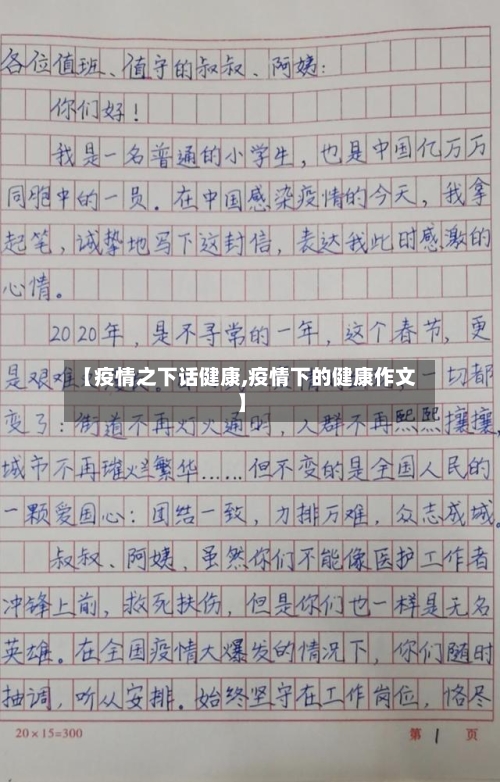 各位值班、值守的叔叔、阿姨：
你们好！
我是一名普通的小学生，也是中国亿万万
同胞中的一员。在中国感染疫情的今天，我拿
起笔，诚挚地写下这封信，表达我此时感激的
心情。
2020年，是不寻常的一年，这个春节，更
【疫情之下话健康,疫情下的健康作文
】
是艰难 一切都
变了：街道不再灯火通明，人群不再熙熙攘攘，
城市不再璀烂繁华……但不变的是全国人民的
一颗爱国心：团结一致，力排万难，众志成城。
叔叔、阿姨，虽然你们不能像医护工作者
冲锋上前，救死扶伤，但是你们也一样是无名
英雄。在全国疫情大爆发的情况下，你们随时
抽调，听从安排。始终坚守在工作岗位，恪尽
20×15=300 第 1 页